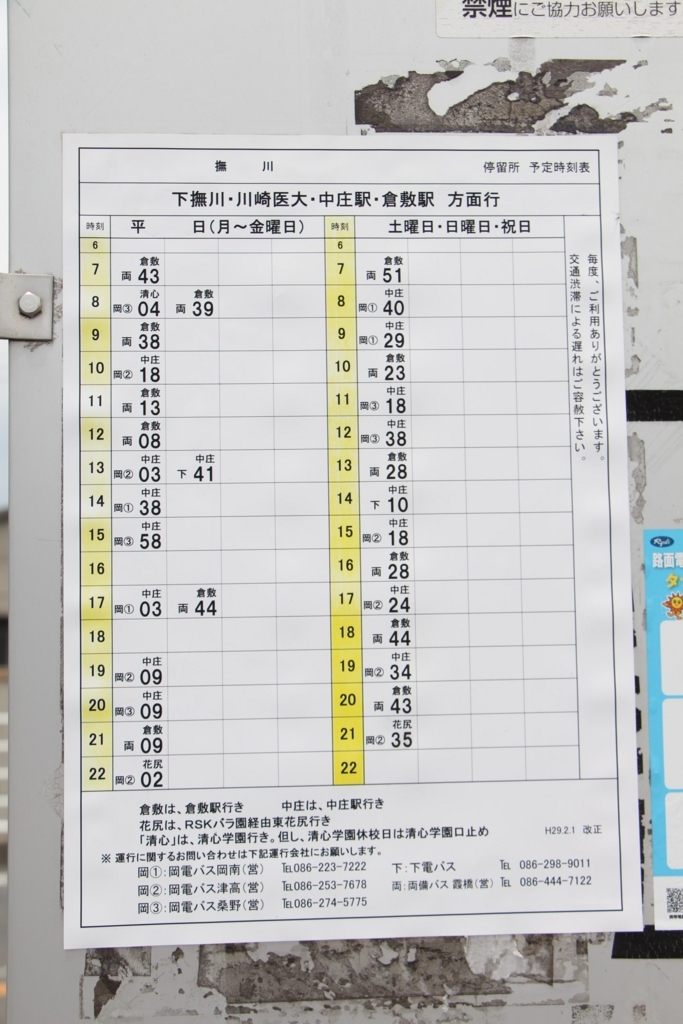 禁煙にご協力お願いします
撫 川 停留所 予定時刻表
下撫川・川崎医大・中庄駅・倉敷駅 方面行
時刻 平 日(月～金曜日) 時刻 土曜日・日曜日・祝日
6 6
倉敷 倉敷
7 両 43 7 両 51
清心 倉敷 中庄
8 岡③ 04 両 39 8 岡① 40
倉敷 中庄
9 両 38 9 岡① 29
中庄 倉敷
10 岡② 18 10 両 23
倉敷 中庄
11 両 13 11 岡③ 18
倉敷 中庄
12 両 08 12 岡③ 38
中庄 中庄 倉敷
13 岡② 03 下 41 13 両 28
中庄 中庄
14 岡① 38 14 下 10
中庄 中庄
15 岡③ 58 15 岡② 18
倉敷
16 16 両 28
中庄 倉敷 中庄
17 岡① 03 両 44 17 岡② 24
倉敷
18 18 両 44
中庄 中庄
19 岡② 09 19 岡② 34
中庄 倉敷
20 岡③ 09 20 両 43
倉敷 花尻
21 両 09 21 岡② 35
花尻
22 岡② 02 22
毎度、ご利用ありがとうございます。
交通渋滞による遅れはご容赦下さい。
倉敷は、倉敷駅行き 中庄は、中庄駅行き
花尻は、RSKバラ園経由東花尻行き
「清心」は、清心学園行き。但し、清心学園休校日は清心学園口止め H29.2.1 改正
※ 運行に関するお問い合わせは下記運行会社にお願いします。
岡①:岡電バス岡南(営) ℡086-223-7222 下:下電バス ℡ 086-298-9011
岡②:岡電バス津高(営) ℡086-253-7678 両:両備バス 霞橋(営) ℡ 086-444-7122
岡③:岡電バス桑野(営) ℡086-274-5775
Ryobi
路面電